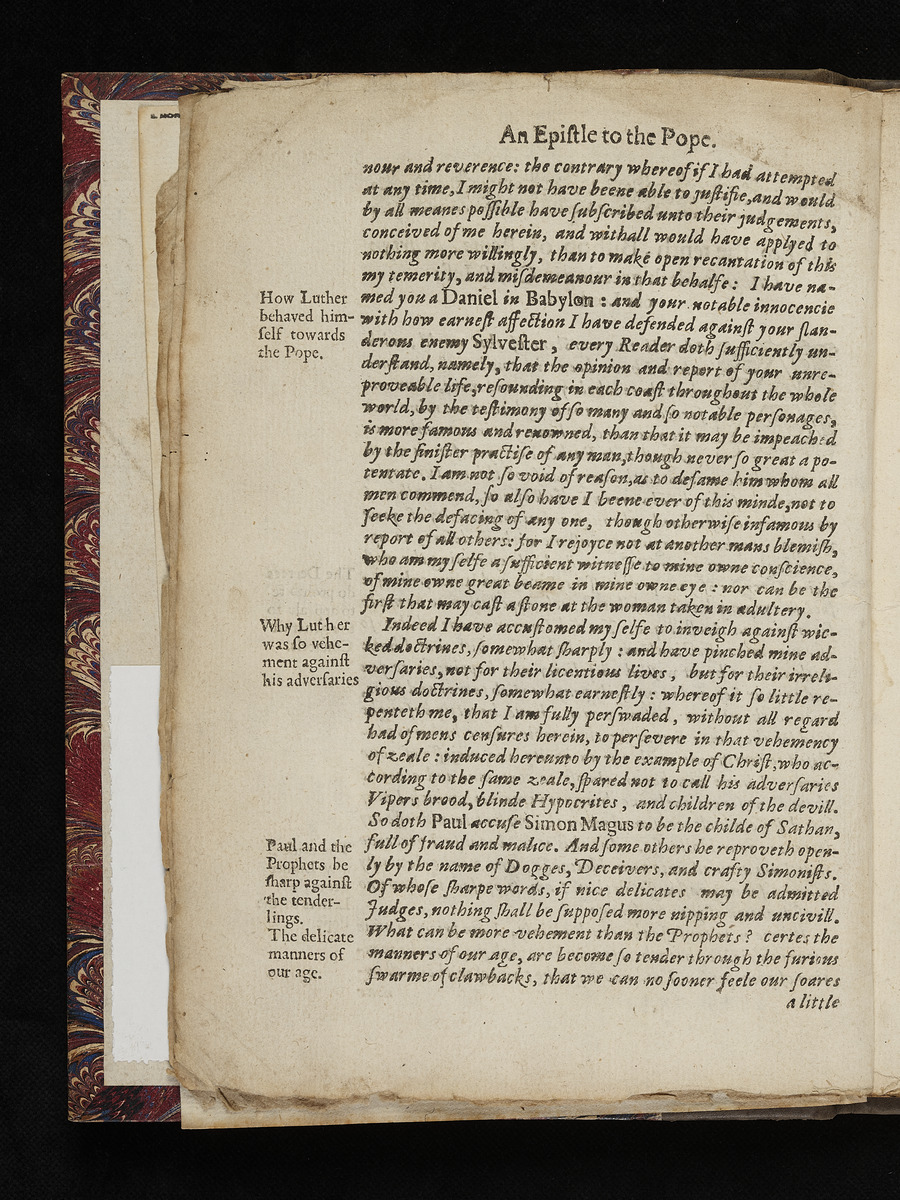 E. MOR
An Epiſtle to the Pope.
nour and reverence: the contrary whereof if I had attempted
at any time, I might not have beene able to juſtifie, and would
by all meanes poſſible have ſubſcribed unto their judgements,
conceived of me herein, and withall would have applyed to
nothing more willingly, than to make open recantation of this
my temerity, and miſdemeanour in that behalfe: I have na-
med you a Daniel in Babylon : and your notable innocencie
with how earneſt affection I have defended againſt your ſlan-
derous enemy Sylveſter, every Reader doth ſufficiently un-
derſtand, namely, that the opinion and report of your unre-
proveable life, reſounding in each coaſt throughout the whole
world, by the teſtimony of ſo many and ſo notable perſonages,
is more famous and renowned, than that it may be impeached
by the ſiniſter practiſe of any man, though never ſo great a po-
tentate. I am not ſo void of reaſon, as to defame him whom all
men commend, ſo alſo have I beene ever of this minde, not to
ſeeke the defacing of any one, though otherwiſe infamous by
report of all others: for I rejoyce not at another mans blemiſh,
who am my ſelfe a ſufficient witneſſe to mine owne conſcience,
of mine owne great beame in mine owne eye : nor can be the
firſt that may caſt a ſtone at the woman taken in adultery.
Indeed I have accuſtomed my ſelfe to inveigh againſt wic-
ked doctrines, ſomewhat ſharply : and have pinched mine ad-
verſaries, not for their licentious lives, but for their irreli-
gious doctrines, ſomewhat earneſtly : whereof it ſo little re-
penteth me, that I am fully perſwaded, without all regard
had of mens cenſures herein, to perſevere in that vehemency
of zeale : induced hereunto by the example of Chriſt, who ac-
cording to the ſame zeale, ſpared not to call his adverſaries
Vipers brood, blinde Hypocrites, and children of the devill.
So doth Paul accuſe Simon Magus to be the childe of Sathan,
full of fraud and malice. And ſome others he reproveth open-
ly by the name of Dogges, Deceivers, and crafty Simoniſts.
Of whoſe ſharpe words, if nice delicates may be admitted
Judges, nothing ſhall be ſuppoſed more nipping and uncivill.
What can be more vehement than the Prophets ? certes the
manners of our age, are become ſo tender through the furious
ſwarme of clawbacks, that we can no ſooner feele our ſoares
a little
How Luther
behaved him-
ſelf towards
the Pope.
Why Luther
was ſo vehe-
ment againſt
his adverſaries
Paul and the
Prophets be
ſharp againſt
the tender-
lings.
The delicate
manners of
our age.